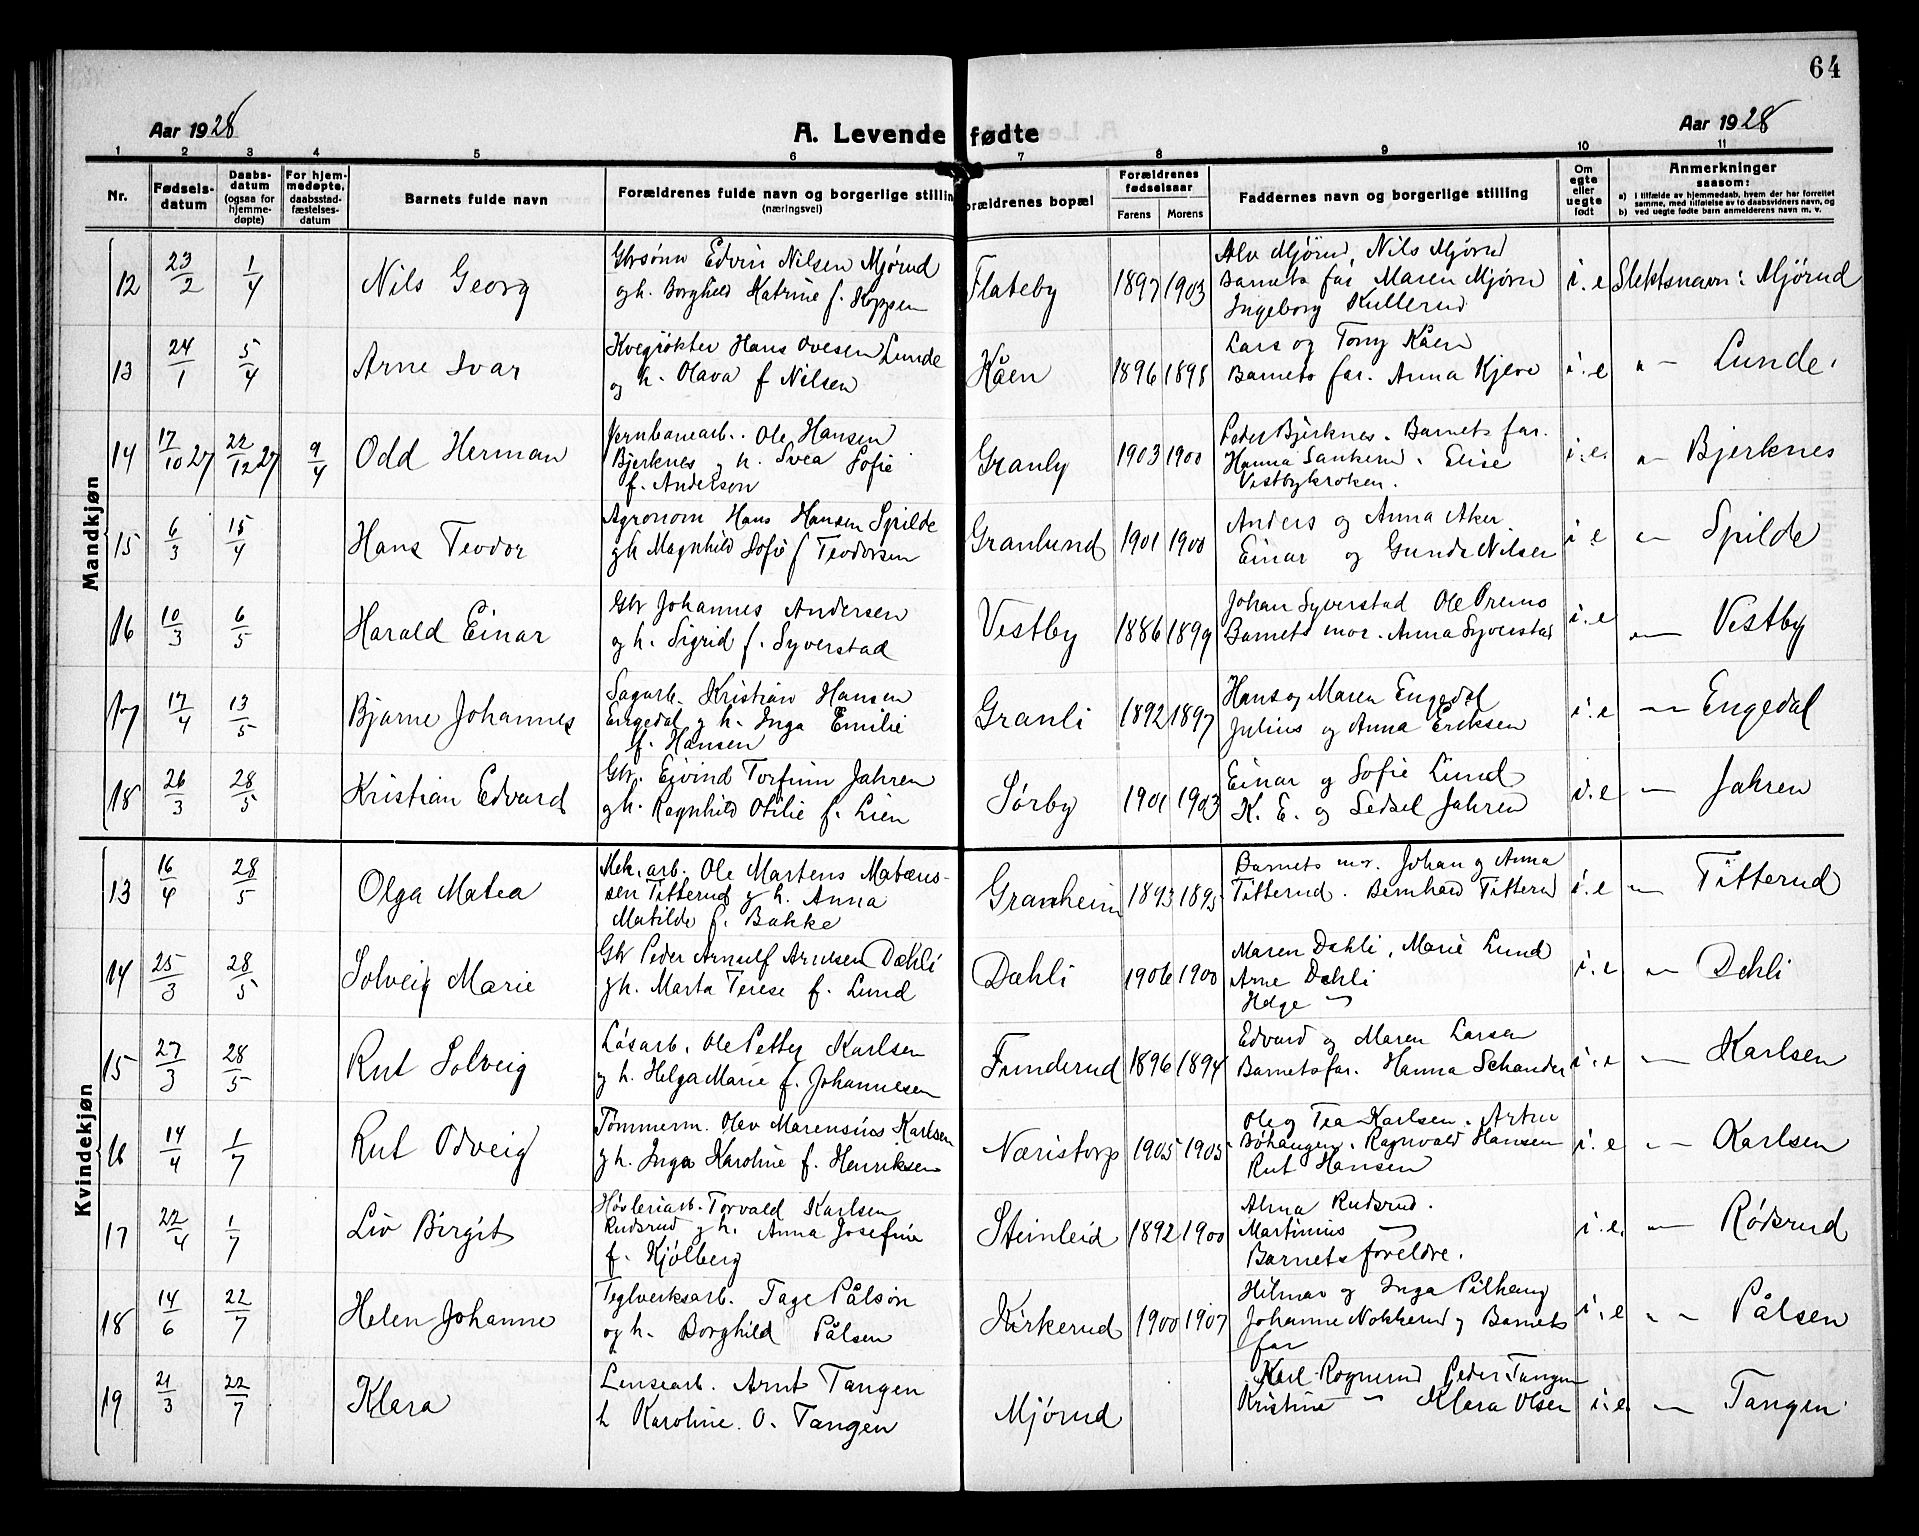 64
Aar 1928
A. Levende fødte
Aar 1928
1 2 3 4 5 6 7 8 9 10 11
Nr.
Fødsels-
datum
Daabs-
datum
(ogsaa for
hjemme-
døpte)
For hjem-
medøpte,
daabsstad-
fæstelses-
datum
Barnets fulde navn
Forældrenes fulde navn og borgerlige stilling
(næringsvei)
orældrenes bopæl
Forældrenes
fødselsaar
Farens
Morens
Faddernes navn og borgerlige stilling
Om
egte
eller
uegte
født
Anmerkninger
saasom:
a) I tilfælde av hjemmedaab, hvem der har forrettet
samme, med tilføielse av to daabsvidners navn, og
b) ved uegte fødte barn anmelderens navn m. v.
Mandkjøn
12 23/2 1/4 Nils Georg
Gbrsønn Edvin Nilsen Mjørud
og h. Borghild Katrine f. Hoppen
Flateby 1897 1903
Alv Mjørud, Nils Mjørud
Barnets far Maren Mjørud
Ingeborg Kullerud
i. e Slektsnavn: Mjørud
13 24/1 5/4 Arne Ivar
Kvegrøkter Hans Ovesen Lunde
og h. Olava f Nilsen
Kåen 1896 1898
Lars og Tony Kåen
Barnets far. Anna Kjeve
i. e " — Lunde.
14 17/10 27 22/12 27 9/4 Odd Herman
Jernbanearb. Ole Hansen
Bjerknes og h. Svea Sofie
f. Anderson
Granly 1903 1900
Peder Bjerknes. Barnets far.
Hanna Sankerud. Elise
Vestbykroken.
i. e. " — Bjerknes
15 6/3 15/4 Hans Teodor
Agronom Hans Hansen Spilde
og h. Magnhild Sofie f Teodorsen
Granlund 1901 1900
Anders og Anna Aker
Einar og Gunda Nilsen
i. e " — Spilde
16 10/3 6/5 Harald Einar
Gbr Johannes Andersen
og h. Sigrid f. Syverstad
Vestby 1886 1899
Johan Syverstad Ole Premo
Barnets mor. Anna Syverstad
i. e " — Vestby
17 17/4 13/5 Bjarne Johannes
Sagarb. Kristian Hansen
Engedal og h. Inga Emilie
f. Hansen
Granli 1892 1897
Hans og Maren Engedal
Julius og Anna Eriksen
i. e " — Engedal
18 26/3 28/5 Kristian Edvard
Gbr. Eivind Torfinn Jahren
og h. Ragnhild Otilie f. Lien
Sørby 1901 1903
Einar og Sofie Lund
K. E. og Sedsel Jahren
i. e " — Jahren
Kvindekjøn
13 16/4 28/5 Olga Matea
Mek. arb. Ole Martens Matæus-
sen Titterud og h. Anna
Matilde f. Bakke
Granheim 1893 1895
Barnets mor. Johan og Anna
Titterud. Bernhard Titterud
i. e " — Titterud
14 25/3 28/5 Solveig Marie
Gbr Peder Arnulf Arnesen Dæhli
og h. Marta Terese f. Lund
Dæhli 1906 1900
Maren Dæhli, Marie Lund
Arne Dæhli
Helge —
i. e " — Dæhli
15 27/3 28/5 Rut Solveig
Løsarb. Ole Petter Karlsen
og h. Helga Marie f. Johannesen
Funderud 1896 1894
Edvard og Maren Larsen
Barnets far. Hanna Schander
i. e " — Karlsen
16 14/4 1/7 Rut Odveig
Tømmerm. Olav Marensius Karlsen
og h. Inga Karoline f. Henriksen
Næristorp 1905 1905
Ole og Tea Karlsen. Artur
Bøhaugen. Ragnvald Hansen
Rut Hansen
i. e " — Karlsen
17 22/4 1/7 Liv Birgit
Høvleriarb. Torvald Karlsen
Rudsrud og h. Anna Josefine
f. Kjølberg
Steinleid 1892 1900
Alma Rudsrud.
Martinius —
Barnets foreldre.
i. e. " — Rødsrud
18 14/6 22/7 Helen Johanne
Teglverksarb. Tage Pålsøn
og h. Borghild Pålsen
Kirkerud 1900 1907
Hilmar og Inga Pilhaug
Johanne Nokkerud og Barnets
far
i. e " — Pålsen
19 21/3 22/7 Klara
Lensearb. Arnt Tangen
h Karoline O. Tangen
Mjørud
Karl Rognerud Peder Tangen
Kristine — Klara Olsen
i. e. " — Tangen